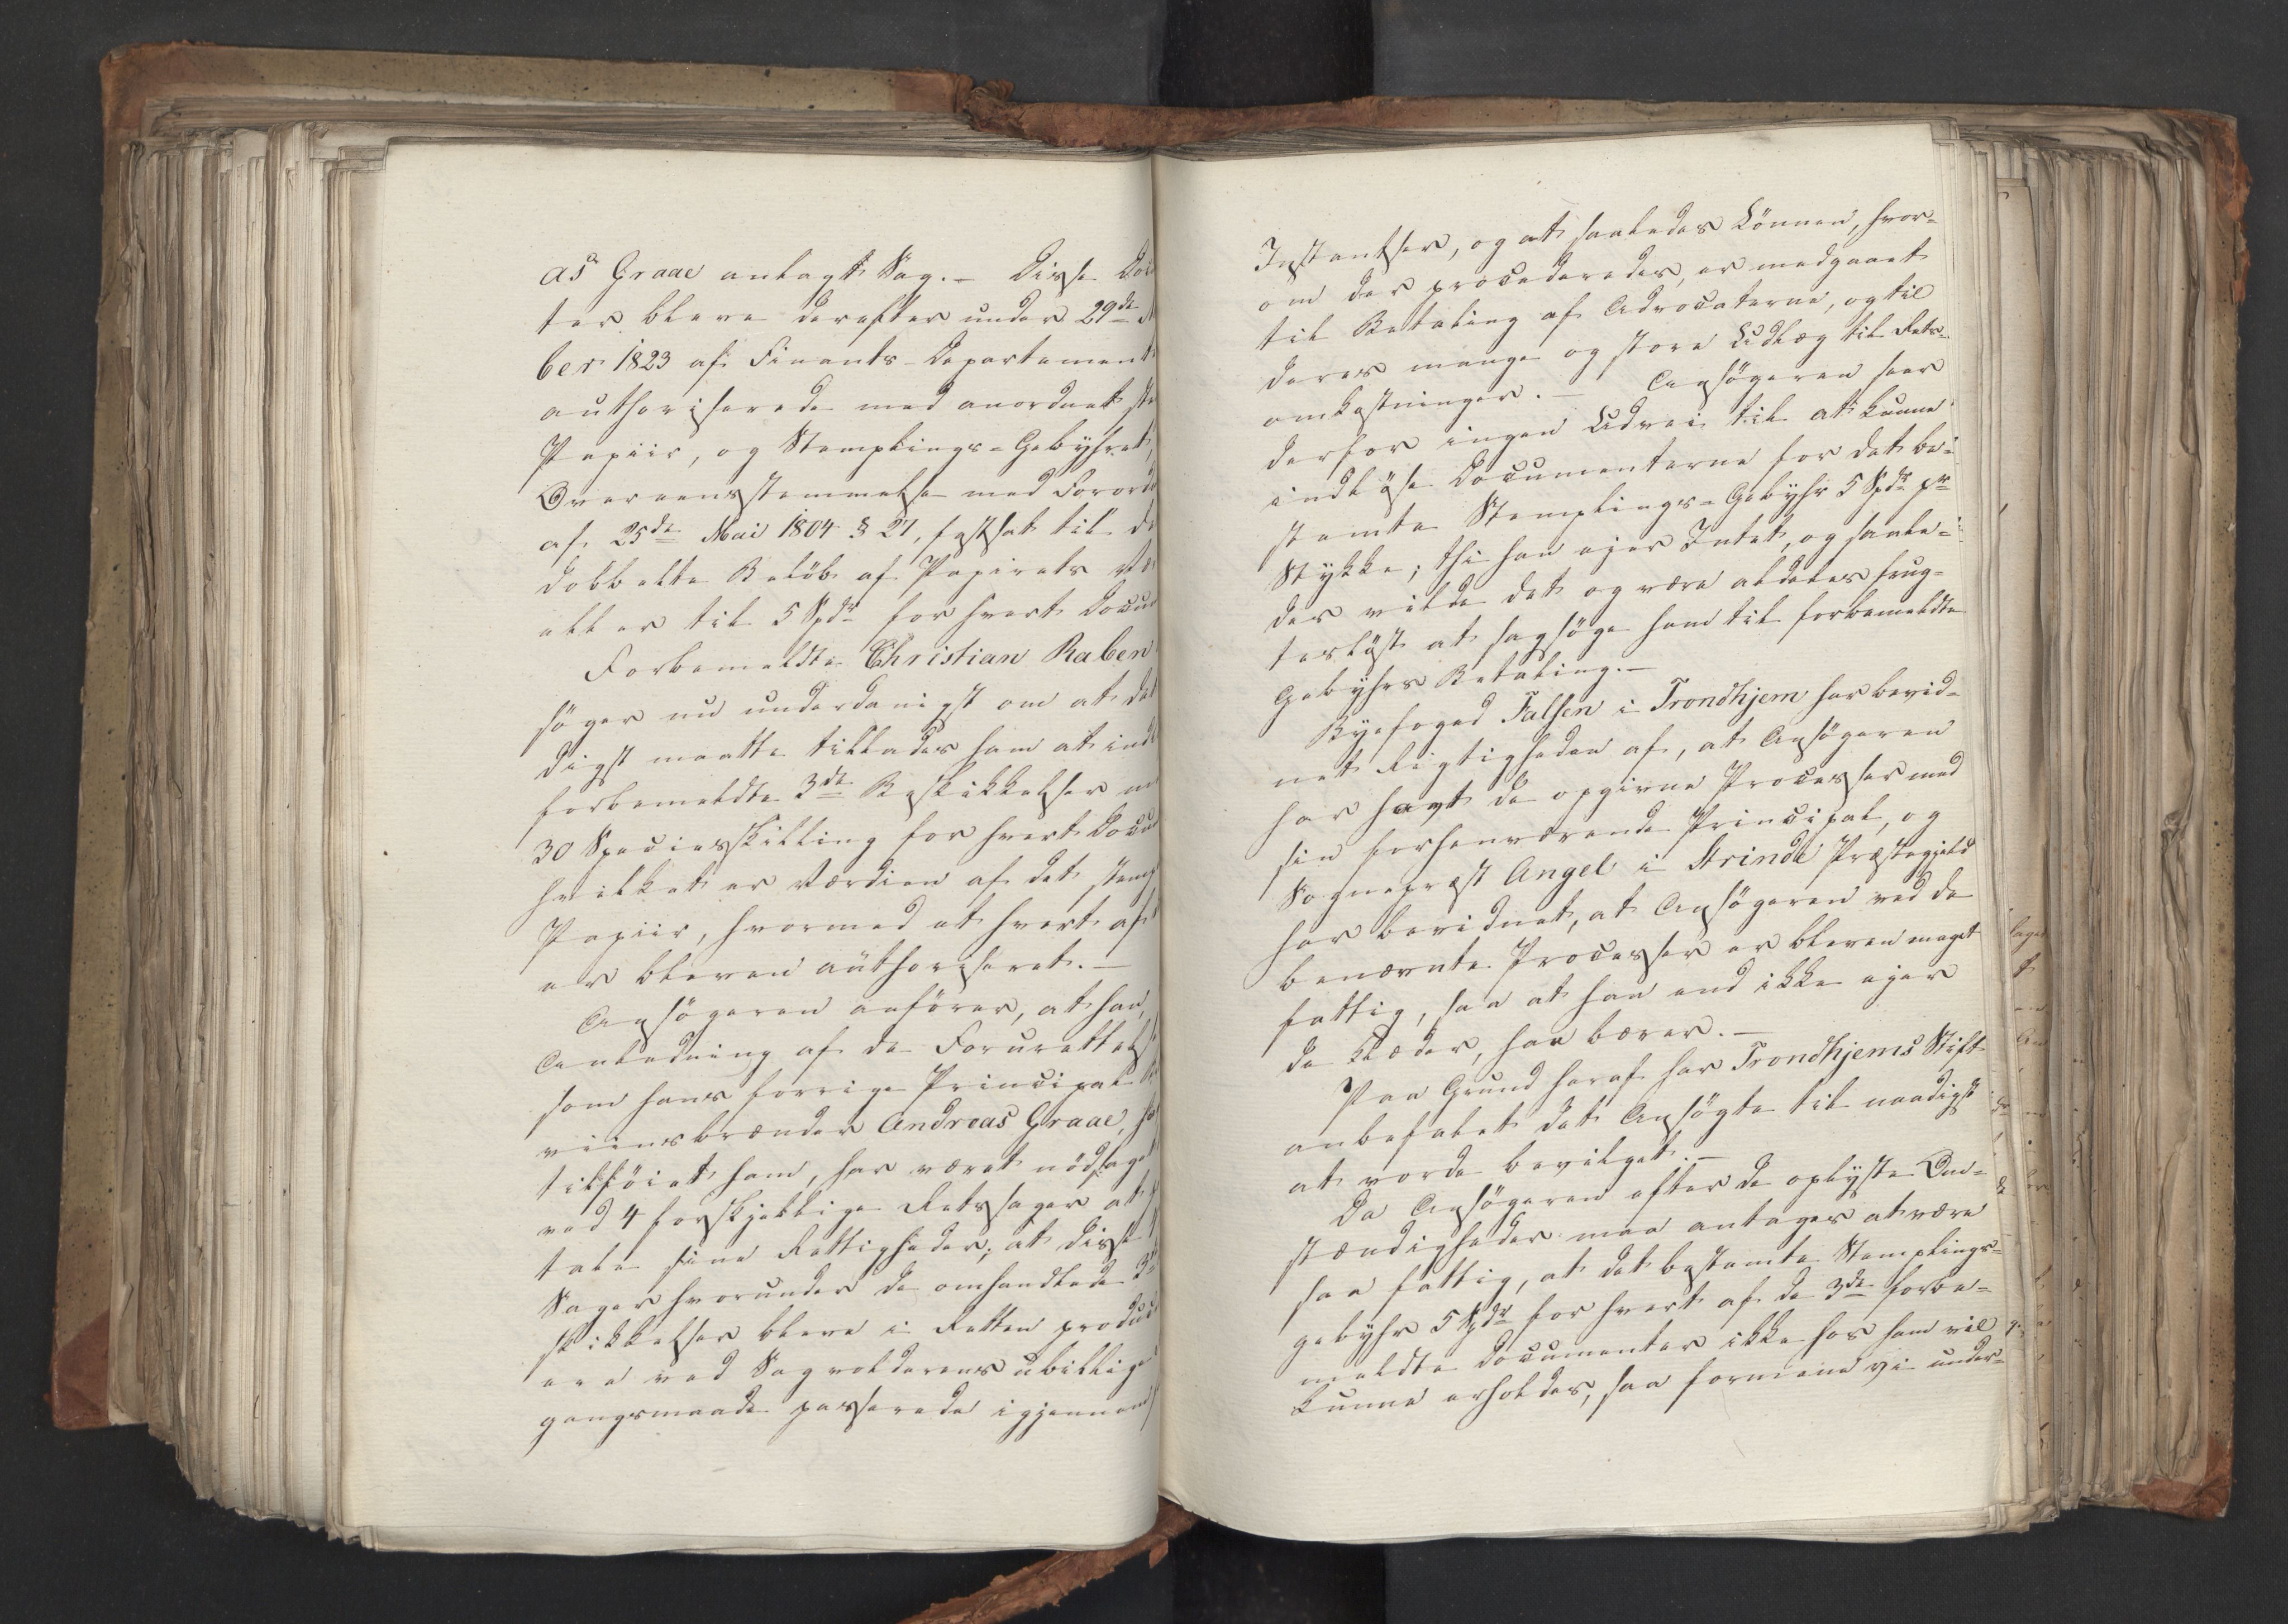 as Graae anlagt Sag. – Disse Docu
ter bleve derefter under 29de
ber 1823 af Finants-Departement
authoriserede med anordnet ste
Papiir, og Stemplings-Gebyhret,
Overeensstemmelse med Forord
af 25de Mai 1804 § 27, fastsat til de
dobbelte Beløb af Papirets Væ
eller til 5 Spdr for hvert Docu
Forbemeldte Christian Raben
søger nu underdanigst om at det
digst maatte tillades ham at indl
forbemeldte 3de Beskikkelser
30 Speciesskilling for hvert Docu
hvilket er Værdien af det stemp
Papiir, hvormed et hvert af
er bleven authoriseret. –
Ansøgeren anfører, at han,
Anledning af de Forurettels
som hans forrige Principal
viinsbrænder Andreas Graae, h
tilføiet ham, har været nødsaget
ved 4 forskjellige Retssager at
tale sine Rettigheder; at disse
Sager hvorunder de omhandlede 3de
skikkelser bleve i Retten produc
ere ved Sagvolderens ubillige
gangsmaade passerede igjennem
Instantser, og at saaledes Lønnen, hvor-
om der procederedes, er medgaaet
til Betaling af Advocaterne, og til
deres mange og store Udlæg til Rets-
omkostninger. – Ansøgeren seer
derfor ingen Udvei til at kunne
indløse Documenterne for det be-
stemte Stemplings-Gebyhr 5 Spdr pr
Stykke; thi han ejer Intet, og saale-
des vilde det og være aldeles frug-
tesløst at sagsøge ham til forbemeldte
Gebyhrs Betaling. –
Byefoged Falsen i Trondhjem har bevid-
net Rigtigheden af, at Ansøgeren
har havt de opgivne Processer med
sin forhenværende Principal, og
Sognepræst Angel i Strinde Præstegjeld
har bevidnet, at Ansøgeren ved de
benævnte Processer er bleven meget
fattig, saa at han end ikke ejer
de Klæder, han bærer. –
Paa Grund heraf har Trondhjems Stift
anbefalet det Ansøgte til naadigst
at vorde bevilget. –
Da Ansøgeren efter de oplyste Om-
stændigheder maa antages at være
saa fattig, at det bestemte Stemplings-
gebyhr 5 Spdr for hvert af de 3de forbe-
meldte Documenter ikke hos ham vil
kunne erholdes, saa formene vi under-